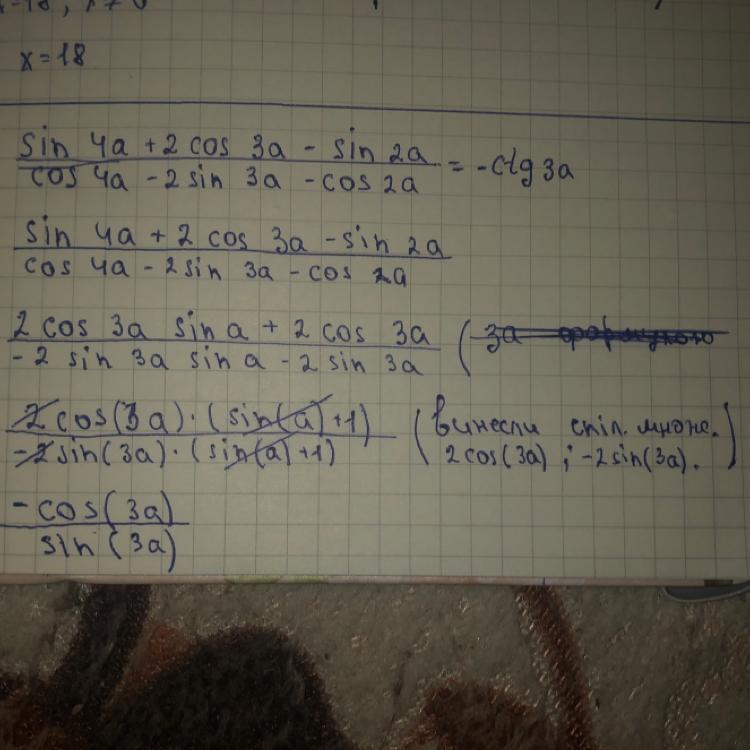 x=18
sin 4a + 2 cos 3a - sin 2a
cos 4a - 2 sin 3a - cos 2a
= -ctg 3a
sin 4a + 2 cos 3a - sin 2a
cos 4a - 2 sin 3a - cos 2a
2 cos 3a sin a + 2 cos 3a
-2 sin 3a sin a - 2 sin 3a
2 cos(3a)·(sin(a)+1)
-2 sin(3a)·(sin(a)+1)
(винесли спіл. множ.
2cos(3a) ; -2sin(3a).)
-cos(3a)
sin(3a)